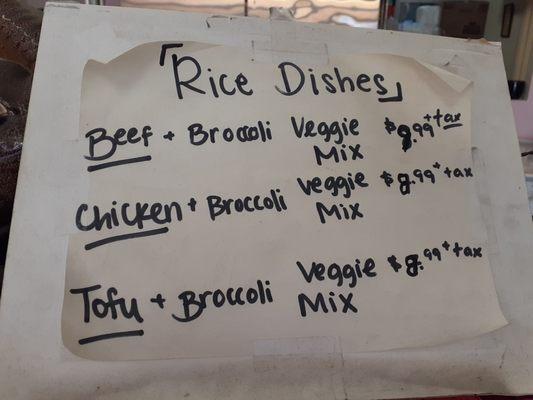 「Rice Dishes」
Beef + Broccoli Veggie Mix $9.99 + tax
Chicken + Broccoli Veggie Mix $8.99 + tax
Tofu + Broccoli Veggie Mix $8.99 + tax